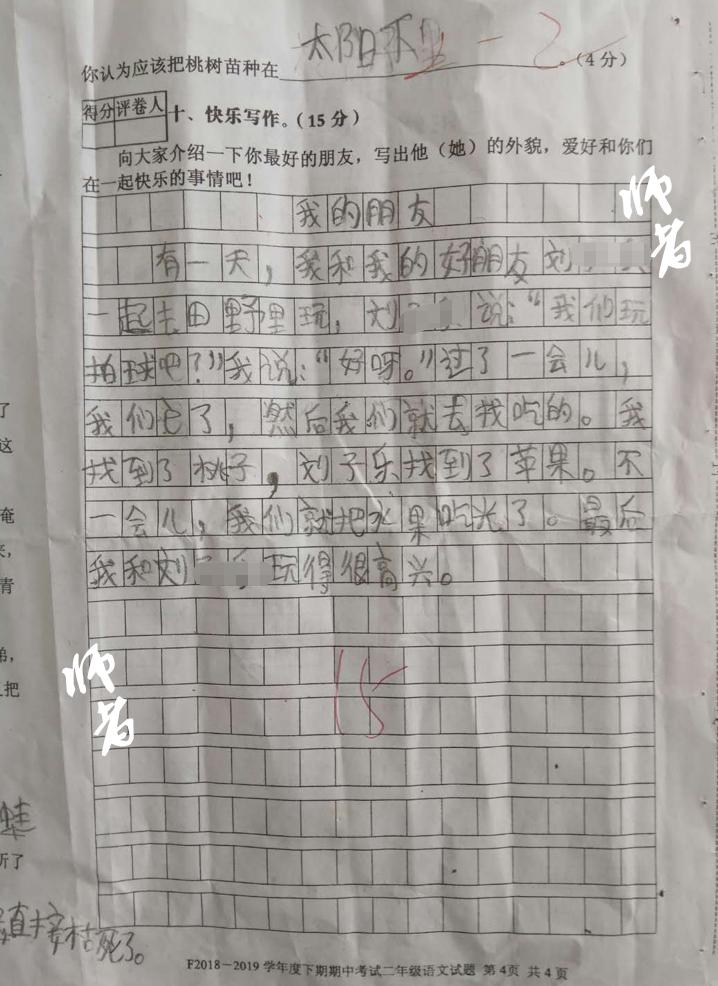 你认为应该把桃树苗种在太阳不 -2。(4分)
得分 评卷人
十、快乐写作。(15分)
向大家介绍一下你最好的朋友，写出他（她）的外貌，爱好和你们
在一起快乐的事情吧！
师者
我的朋友
有一天，我和我的好朋友刘
一起去田野里玩，刘 说：“我们玩
拍球吧？”我说：“好呀。”过了一会儿，
我们它了，然后我们就去找吃的。我
找到了桃子，刘子乐找到了苹果。不
一会儿，我们就把水果吃光了。最后
我和刘 玩得很高兴。
15
师者
了
这
奄
来，
青
弟，
把
蛙
听了
直接枯死了。
F2018－2019学年度下期期中考试二年级语文试题 第4页 共4页